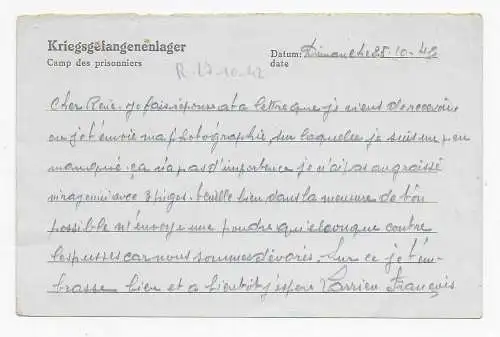 Kriegsgefangenenlager
Camp des prisonniers
Datum: Dimanche 25.10.42
date
R. 27.10.42
Cher René. je fais réponse à ta lettre que je viens de recevoir
ou je t'envoie ma photographie, sur laquelle je suis un peu
manqué. ça n'a pas d'importance je n'ai pas engraissé
ni rajeuni avec 3 piges. veuille bien dans la mesure de ton
possible m'envoyer une poudre quelconque contre
les puces car nous sommes dévorés. Sur ce je t'em-
brasse bien et a bientôt j'espère Larrieu François